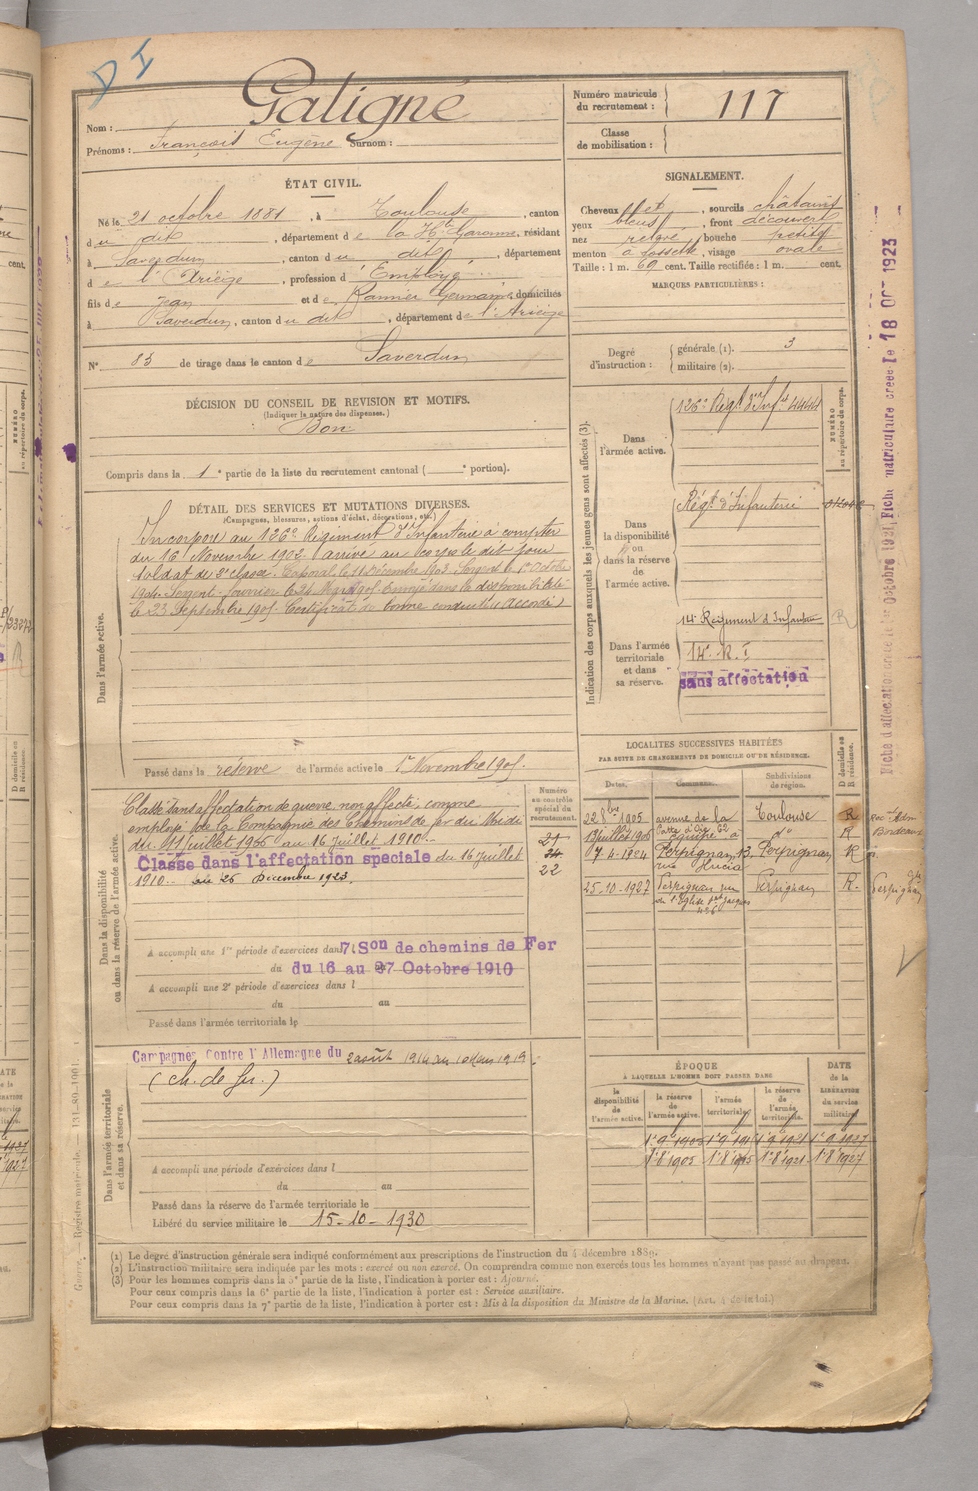 D I
Nom : Galigné
Prénoms : François Eugène Surnom :
Numéro matricule du recrutement : 117
Classe de mobilisation :
ÉTAT CIVIL.
Né le 21 octobre 1881, à Toulouse, canton
du dit, département de la Hte Garonne, résidant
à Saverdun, canton du dit, département
de l'Ariège, profession d'Employé
fils de Jean et de Germaine, domiciliés
à Saverdun, canton du dit, département de l'Ariège
N° 85 de tirage dans le canton de Saverdun
SIGNALEMENT.
Cheveux et sourcils châtains
yeux bleus, front découvert
nez relevé, bouche petite
menton à fossette, visage ovale
Taille : 1 m. 69 cent. Taille rectifiée : 1 m. cent.
MARQUES PARTICULIÈRES :
Degré d'instruction : générale (1). 3
militaire (2).
DÉCISION DU CONSEIL DE REVISION ET MOTIFS.
(Indiquer la nature des dispenses.)
Bon
Compris dans la 1e partie de la liste du recrutement cantonal ( e portion).
DÉTAIL DES SERVICES ET MUTATIONS DIVERSES.
(Campagnes, blessures, actions d'éclat, décorations, etc.)
Dans l'armée active.
Incorporé au 126e Régiment d'Infanterie à compter
du 16 Novembre 1902 arrivé au corps le dit jour
soldat de 2e classe. Caporal le 11 Décembre 1903. Sergent le 1er Octobre
1904. Sergent-fourrier le 24 1905. Envoyé dans la disponibilité
le 23 Septembre 1905. Certificat de bonne conduite accordé
Passé dans la réserve de l'armée active le 1er Novembre 1905.
Indication des corps auxquels les jeunes gens sont affectés (3).
NUMÉRO au répertoire du corps.
Dans l'armée active.
126e Régt d'Infie 4444
Dans la disponibilité ou dans la réserve de l'armée active.
Régt d'Infanterie
Dans l'armée territoriale et dans sa réserve.
14e Régiment d'Infanterie
14e R.I
sans affectation
R
LOCALITÉS SUCCESSIVES HABITÉES
PAR SUITE DE CHANGEMENTS DE DOMICILE OU DE RÉSIDENCE.
Dates. Communes. Subdivisions de région. D domicile ou R résidence.
22 8bre 1905 avenue de la Patte d'Oie 62 Toulouse R
13 juillet 1906 à do R
7-4-1924 Perpignan, 13, rue Lucia Perpignan R
25-10-1927 Perpignan rue de l'Eglise St Jacques Perpignan R.
Bordeaux
Perpignan
Dans la disponibilité ou dans la réserve de l'armée active.
Numéro au contrôle spécial du recrutement.
Classé dans affectation de guerre, non affecté, comme
employé de la Compagnie des Chemins de fer du Midi
du 11 Juillet 1906 au 16 Juillet 1910
Classé dans l'affectation speciale du 16 juillet
1910 au 25 Décembre 1923.
21
34
22
A accompli une 1re période d'exercices dans 7e Son de chemins de Fer
du du 16 au 27 Octobre 1910
A accompli une 2e période d'exercices dans l
du au
Passé dans l'armée territoriale le
Dans l'armée territoriale et dans sa réserve.
Campagnes contre l'Allemagne du 2 août 1914 au 10 Mars 1919
(ch. de fer.)
A accompli une période d'exercices dans l
du au
Passé dans la réserve de l'armée territoriale le
Libéré du service militaire le 15-10-1930
ÉPOQUE
À LAQUELLE L'HOMME DOIT PASSER DANS
la disponibilité de l'armée active. la réserve de l'armée active. l'armée territoriale. la réserve de l'armée territoriale.
DATE de la LIBÉRATION du service militaire.
1er 8 1905 1er 8 1915 1er 8 1921 1er 8 1927
(1) Le degré d'instruction générale sera indiqué conformément aux prescriptions de l'instruction du 4 décembre 1889.
(2) L'instruction militaire sera indiquée par les mots : exercé ou non exercé. On comprendra comme non exercés tous les hommes n'ayant pas passé au drapeau.
(3) Pour les hommes compris dans la 5e partie de la liste, l'indication à porter est : Ajourné.
Pour ceux compris dans la 6e partie de la liste, l'indication à porter est : Service auxiliaire.
Pour ceux compris dans la 7e partie de la liste, l'indication à porter est : Mis à la disposition du Ministre de la Marine. (Art. 4 de la loi.)
Guerre. — Registre matricule. — 131-80-1901.
Fiche matriculaire créée le 18 OCT 1923